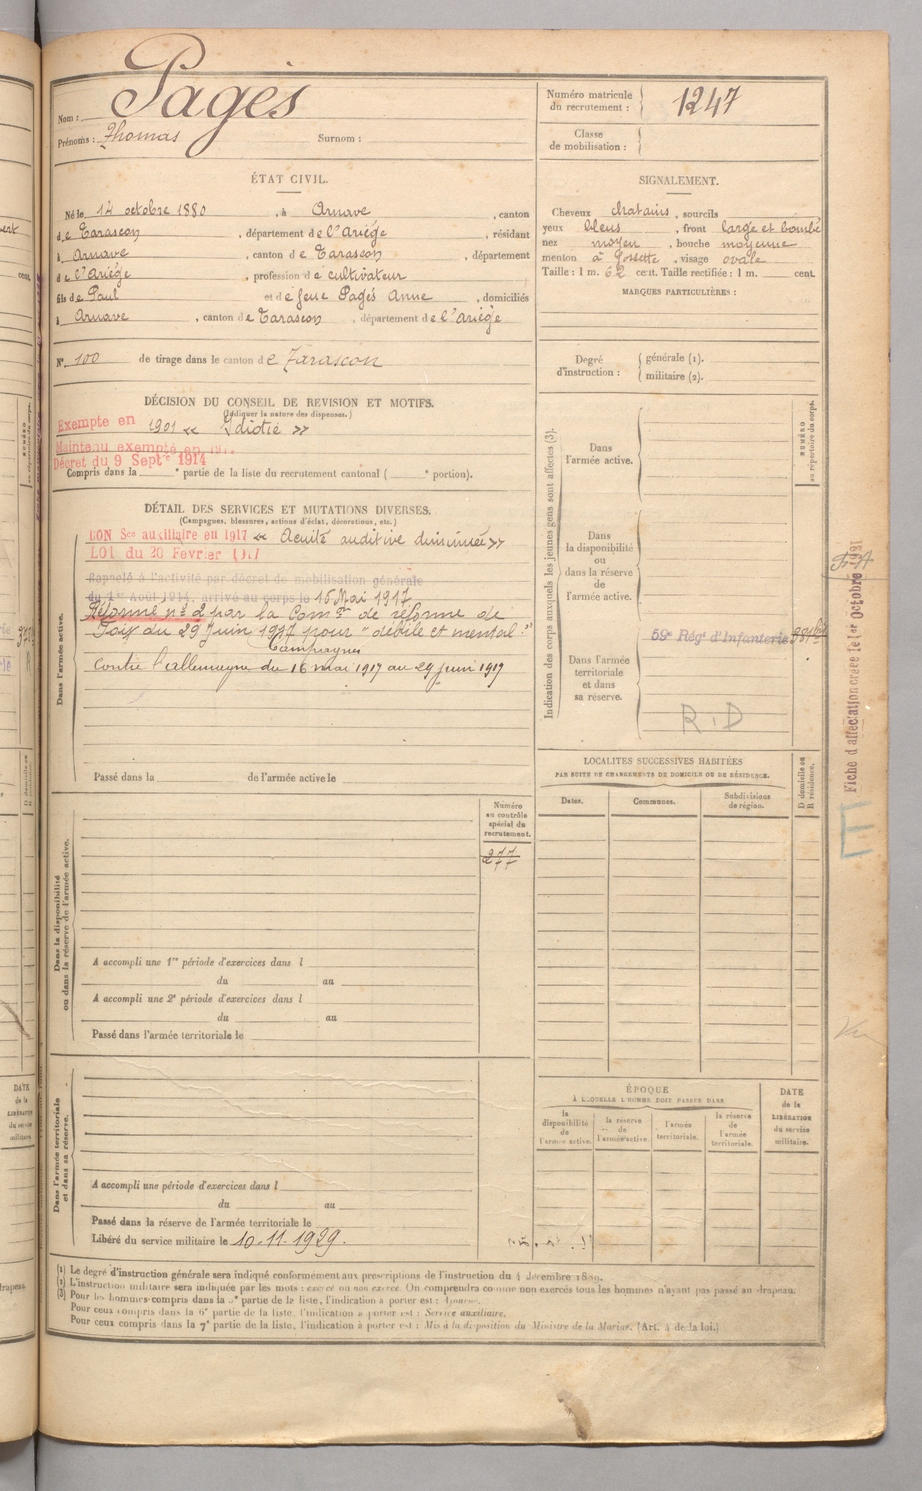 Nom : Pagès
Prénoms : Thomas Surnom :
Numéro matricule du recrutement : 1247
Classe de mobilisation :
ÉTAT CIVIL.
Né le 14 octobre 1880, à Arnave, canton
de Tarascon, département de l'Ariège, résidant
à Arnave, canton de Tarascon, département
de l'Ariège, profession de cultivateur
fils de Paul et de feue Pagès Anne, domiciliés
à Arnave, canton de Tarascon, département de l'Ariège
N° 100 de tirage dans le canton de Tarascon
SIGNALEMENT.
Cheveux chatains, sourcils
yeux bleus, front large et bombé
nez moyen, bouche moyenne
menton à fossette, visage ovale
Taille : 1 m. 62 cent. Taille rectifiée : 1 m. cent.
MARQUES PARTICULIÈRES :
Degré d'instruction : générale (1).
militaire (2).
DÉCISION DU CONSEIL DE REVISION ET MOTIFS.
(Indiquer la nature des dispenses.)
Exempte en 1901 « Idiotie »
Maintenu exempté en
Décret du 9 Septre 1914
Compris dans la e partie de la liste du recrutement cantonal ( e portion).
DÉTAIL DES SERVICES ET MUTATIONS DIVERSES.
(Campagnes, blessures, actions d'éclat, décorations, etc.)
BON Sce auxiliaire en 1917 « Acuité auditive diminuée »
LOI du 20 Fevrier 1917
Rappelé à l'activité par décret de mobilisation générale
du 1er Août 1914, arrivé au corps le 16 Mai 1917
Réformé n° 2 par la Comon de réforme de
Foix du 29 Juin 1917 pour "débile et mental."
Campagnes
Contre l'allemagne du 16 mai 1917 au 29 juin 1917
Dans l'armée active.
Passé dans la de l'armée active le
Indication des corps auxquels les jeunes gens sont affectés (3).
NUMÉRO au répertoire du corps.
Dans l'armée active.
Dans la disponibilité ou dans la réserve de l'armée active.
Dans l'armée territoriale et dans sa réserve.
59e Régt d'Infanterie
R.D
Fiche d'affectation créée le 1er Octobre 1921
E
LOCALITÉS SUCCESSIVES HABITÉES
PAR SUITE DE CHANGEMENTS DE DOMICILE OU DE RÉSIDENCE.
Dates.
Communes.
Subdivisions de région.
D domicile ou R résidence.
Numéro au contrôle spécial du recrutement.
Dans la disponibilité ou dans la réserve de l'armée active.
A accompli une 1re période d'exercices dans l
du au
A accompli une 2e période d'exercices dans l
du au
Passé dans l'armée territoriale le
ÉPOQUE
À LAQUELLE L'HOMME DOIT PASSER DANS
la disponibilité de l'armée active.
la réserve de l'armée active.
l'armée territoriale.
la réserve de l'armée territoriale.
DATE de la LIBÉRATION du service militaire.
Dans l'armée territoriale et dans sa réserve.
A accompli une période d'exercices dans l
du au
Passé dans la réserve de l'armée territoriale le
Libéré du service militaire le 10.11.1929.
(1) Le degré d'instruction générale sera indiqué conformément aux prescriptions de l'instruction du 4 décembre 1889.
(2) L'instruction militaire sera indiquée par les mots : exercé ou non exercé. On comprendra comme non exercés tous les hommes n'ayant pas passé au drapeau.
(3) Pour les hommes compris dans la partie de la liste, l'indication à porter est : Ajourné.
Pour ceux compris dans la 6e partie de la liste, l'indication à porter est : Service auxiliaire.
Pour ceux compris dans la 7e partie de la liste, l'indication à porter est : Mis à la disposition du Ministre de la Marine. (Art. 4 de la loi.)